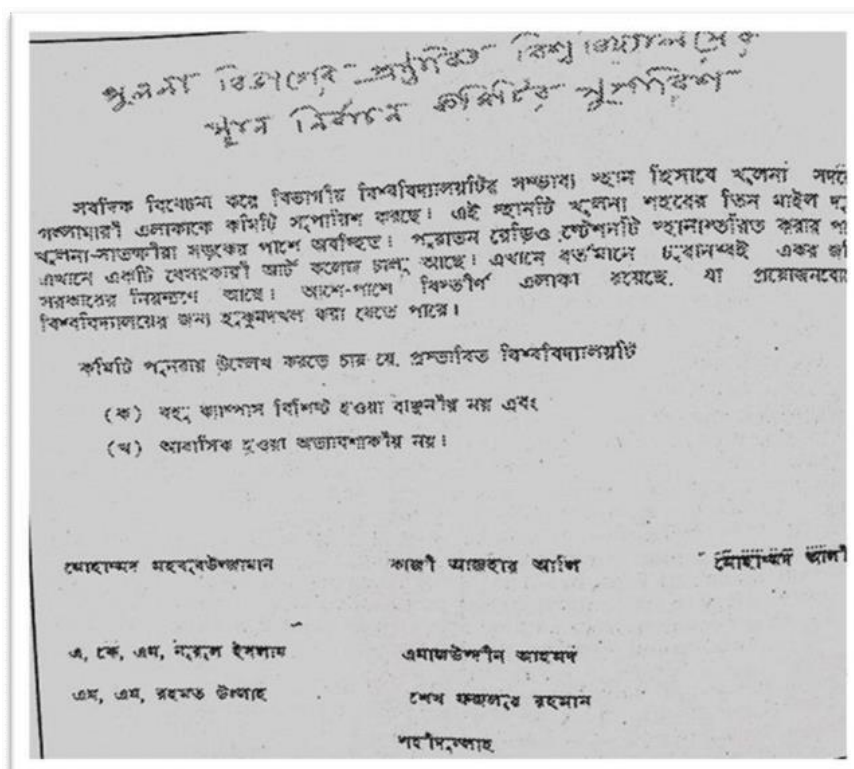 খুলনা বিভাগের প্রস্তাবিত বিশ্ববিদ্যালয়ের
স্থান নির্বাচন কমিটির সুপারিশ
সবদিক বিবেচনা করে বিভাগীয় বিশ্ববিদ্যালয়টির সম্ভাব্য স্থান হিসাবে খুলনা সদরে
গল্লামারী এলাকাকে কমিটি সুপারিশ করছে। এই স্থানটি খুলনা শহরের তিন মাইল দূ
খুলনা-সাতক্ষীরা সড়কের পাশে অবস্থিত। পুরাতন রেডিও স্টেশনটি স্থানান্তরিত করার প
এখানে একটি বেসরকারী আর্ট কলেজ চালু আছে। এখানে বর্তমানে চুরানব্বই একর জ
সরকারের নিয়ন্ত্রণে আছে। আশে-পাশে বিস্তীর্ণ এলাকা রয়েছে, যা প্রয়োজনবো
বিশ্ববিদ্যালয়ের জন্য হুকুমদখল করা যেতে পারে।
কমিটি পুনরায় উল্লেখ করতে চায় যে, প্রস্তাবিত বিশ্ববিদ্যালয়টি
(ক) বহু ক্যাম্পাস বিশিষ্ট হওয়া বাঞ্ছনীয় নয় এবং
(খ) আবাসিক হওয়া অত্যাবশ্যকীয় নয়।
মোহাম্মদ মহবুবউজ্জামান কাজী আজহার আলি মোহাম্মদ আলী
এ, কে, এম, নূরুল ইসলাম এমাজউদ্দীন আহমদ
এম, এম, রহমত উল্লাহ শেখ ফজলুর রহমান
শহীদুল্লাহ